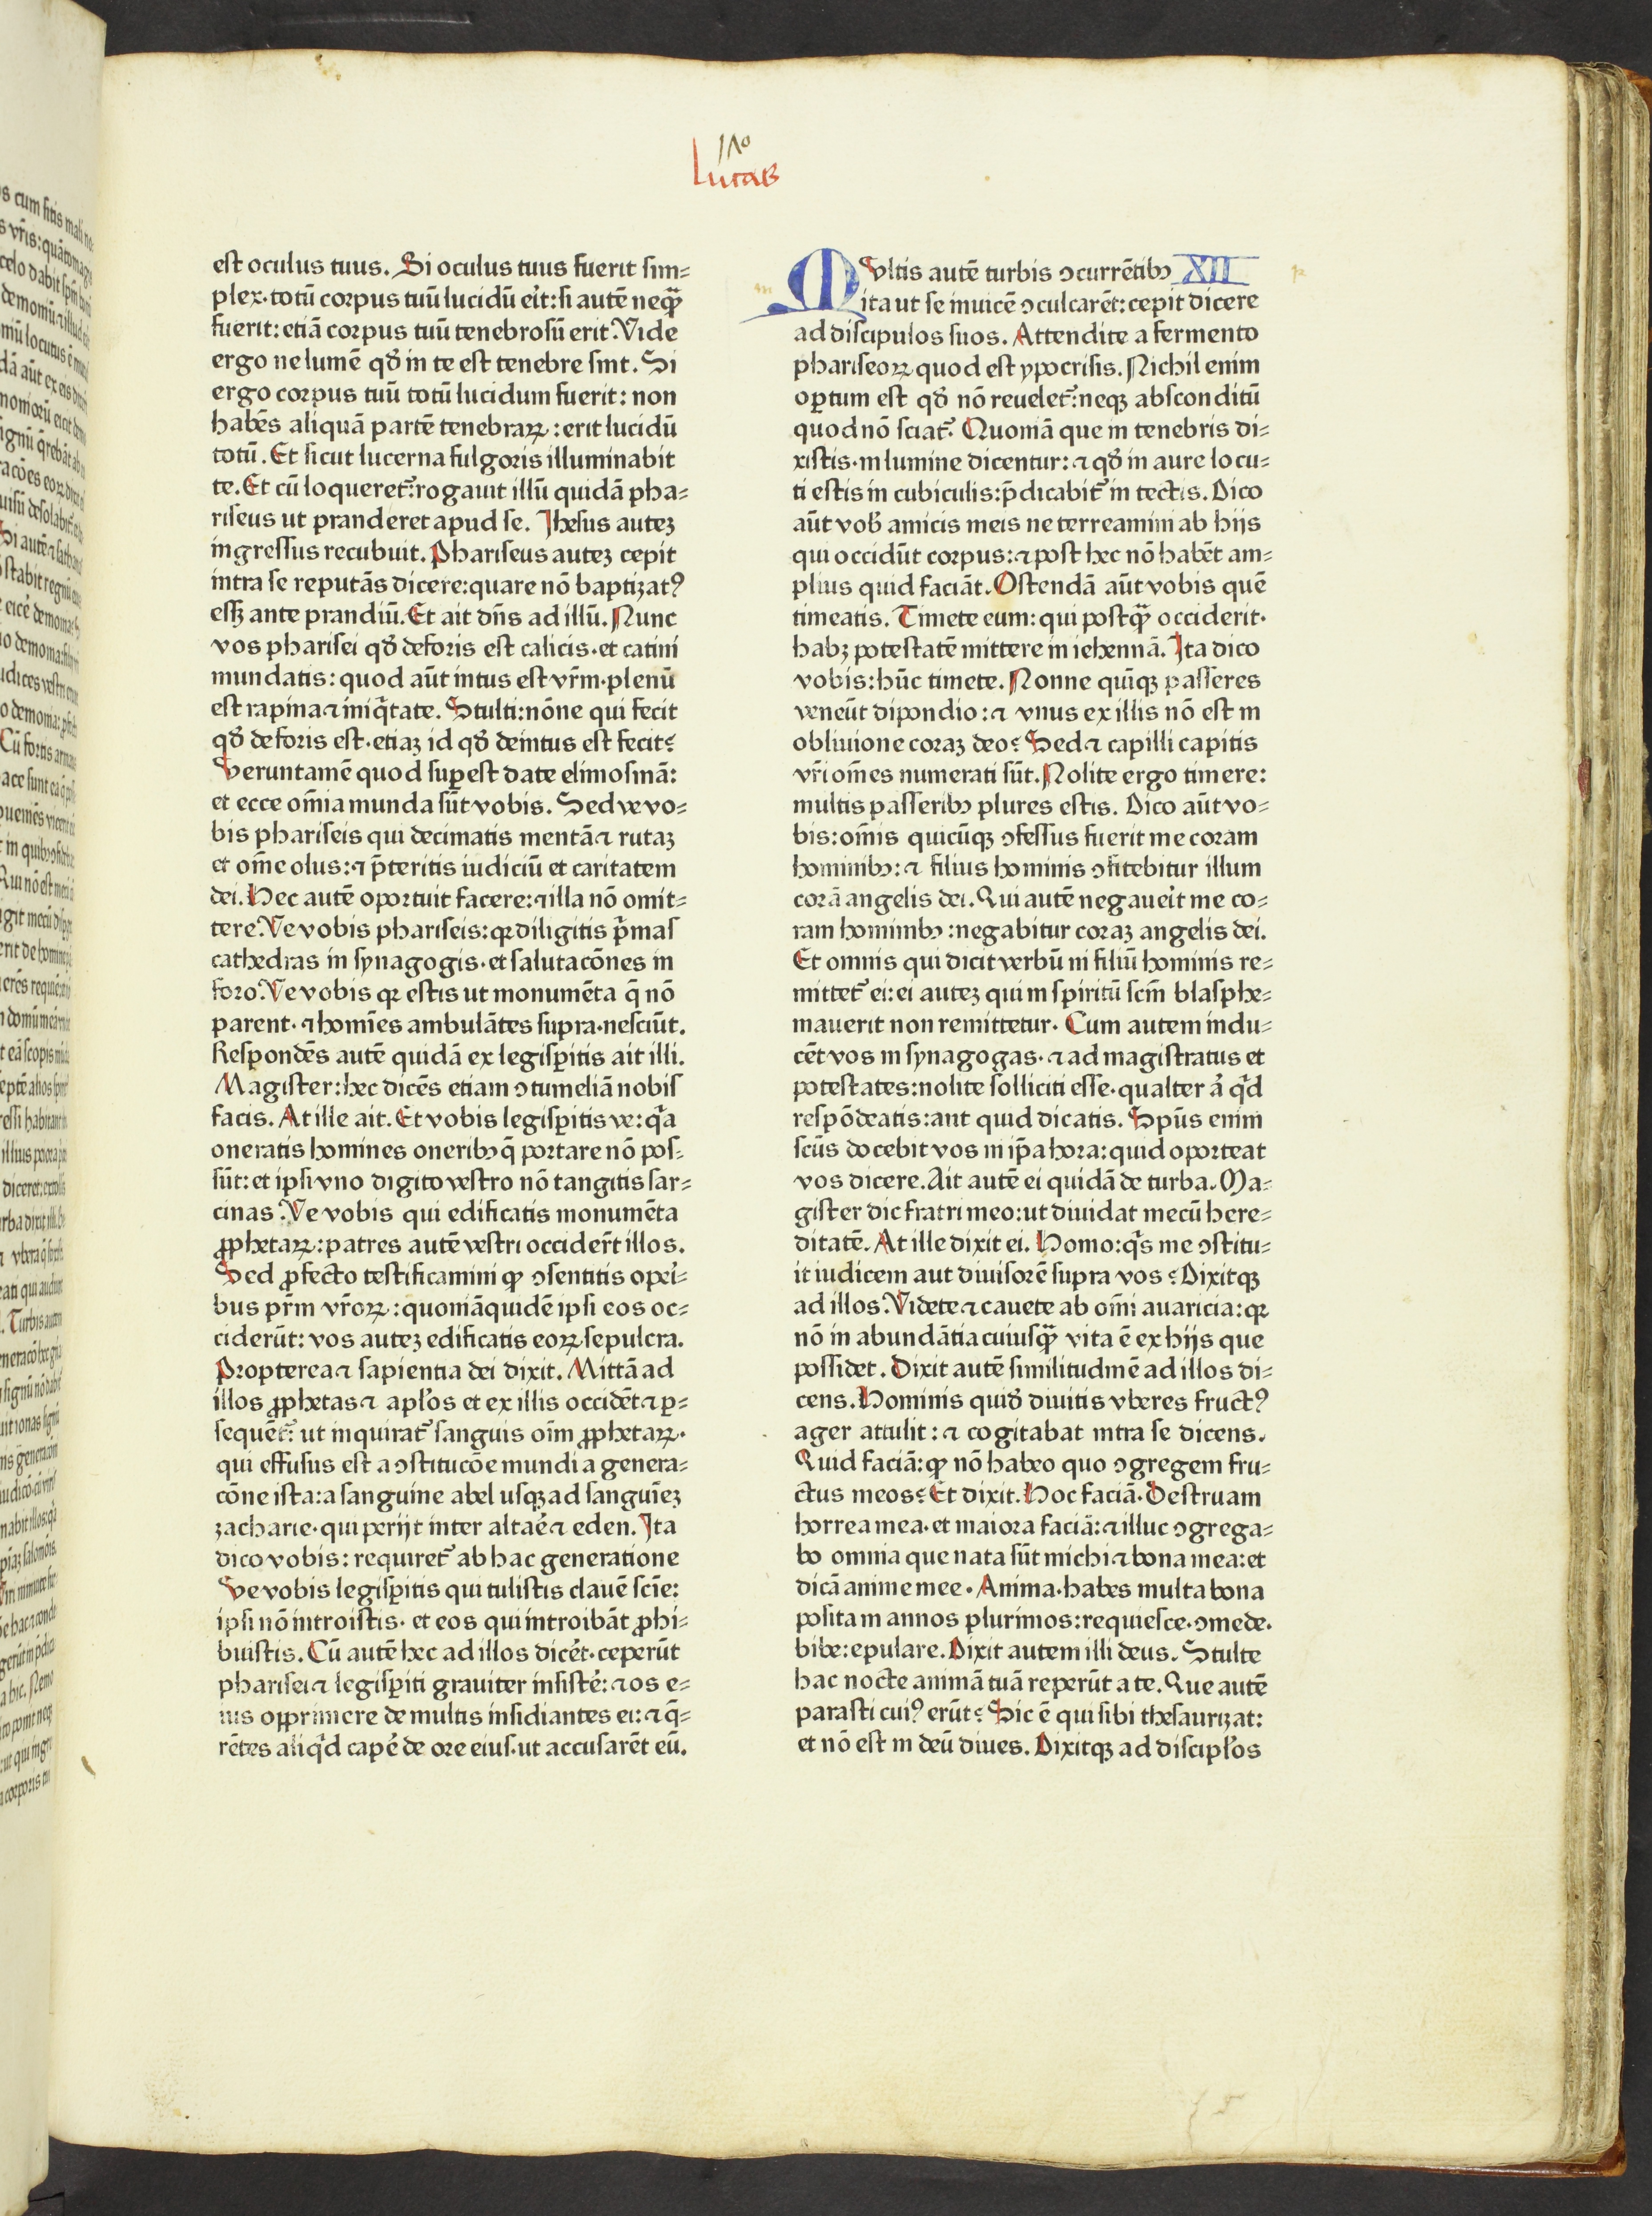 Lucas
est oculus tuus. Si oculus tuus fuerit sim⸗
plex·totū corpus tuū lucidū eit:si autē neqꝫ
fuerit:etiā corpus tuū tenebrosū erit. Vide
ergo ne lumē qđ in te est tenebre sint. Si
ergo corpus tuū totū lucidum fuerit: non
habēs aliquā partē tenebraꝝ: erit lucidū
totū. Et sicut lucerna fulgoris illuminabit
te. Et cū loqueret᷑:rogauit illū quidā pha⸗
riseus ut pranderet apud se. Jhesus auteꝫ
ingressus recubuit. Phariseus auteꝫ cepit
intra se reputās dicere:quare nō baptizatꝰ
essꝫ ante prandiū. Et ait dn̄s ad illū. Nunc
vos pharisei qđ deforis est calicis·et catini
mundatis: quod aūt intus est vr̄m·plenū
est rapina ⁊ iniq̄tate. Stulti:nōne qui fecit
qđ deforis est·etiaꝫ id qđ deintus est fecit?
Veruntamē quod suꝑest date elimosinā:
et ecce om̄ia munda sūt vobis. Sed ve vo⸗
bis phariseis qui decimatis mentā ⁊ rutaꝫ
et om̄e olus: ⁊ p̄teritis iudiciū et caritatem
dei. Hec autē oportuit facere: ⁊ illa nō omit⸗
tere. Ve vobis phariseis: qꝛ diligitis p̄mas
cathedras in synagogis·et salutacōnes in
foro. Ve vobis qꝛ estis ut monumēta q̄ nō
parent· ⁊ homīes ambulātes supra·nesciūt.
Respondēs autē quidā ex legisꝑitis ait illi.
Magister:hec dicēs etiam ↄtumeliā nobis
facis. At ille ait. Et vobis legisꝑitis ve: q̄a
oneratis homines oneribꝫ q̄ portare nō pos⸗
sūt: et ipsi vno digito vestro nō tangitis sar⸗
cinas. Ve vobis qui edificatis monumēta
ꝓphetaꝝ: patres autē vestri occider̄t illos.
Sed ꝓfecto testificamini ꝙ ↄsentitis opei⸗
bus pr̄m vr̄oꝝ: quoniāquidē ipsi eos oc⸗
ciderūt: vos auteꝫ edificatis eoꝝ sepulcra.
Propterea ⁊ sapientia dei dixit. Mittā ad
illos ꝓphetas ⁊ apl̄os et ex illis occidēt ⁊ ꝑ⸗
sequēt᷑: ut inquirat᷑ sanguis oīm ꝓphetaꝝ·
qui effusus est a ↄstitucōe mundi a genera⸗
cōne ista: a sanguine abel usqꝫ ad sanguīeꝫ
zacharie· qui perijt inter altaē ⁊ eden. Jta
dico vobis: requiret᷑ ab hac generatione
Ve vobis legisꝑitis qui tulistis clauē scīe:
ipsi nō introistis· et eos qui introibāt ꝓhi⸗
buistis. Cū autē hec ad illos dicēt·ceperūt
pharisei ⁊ legisꝑiti grauiter insistē: ⁊ os e⸗
ius opprimere de multis insidiantes ei: ⁊ q̄⸗
rētes aliq̄d capē de ore eius·ut accusarēt eū.
MVltis autē turbis ↄcurrētibꝫ XII
ita ut se inuicē ↄculcarēt: cepit dicere
ad discipulos suos. Attendite a fermento
phariseoꝝ quod est ypocrisis. Nichil enim
oꝑtum est qđ nō reuelet᷑: neqꝫ absconditū
quod nō sciat᷑. Quoniā que in tenebris di⸗
xistis· in lumine dicentur: ⁊ qđ in aure locu⸗
ti estis in cubiculis: p̄dicabit᷑ in tectis. Dico
aūt vob̄ amicis meis ne terreamini ab hijs
qui occidūt corpus: ⁊ post hec nō habēt am⸗
plius quid faciāt. Ostendā aūt vobis quē
timeatis. Timete eum: qui postqꝫ occiderit·
habꝫ potestatē mittere in iehennā. Jta dico
vobis: hūc timete. Nonne quīqꝫ passeres
veneūt dipondio: ⁊ vnus ex illis nō est in
obliuione coraꝫ deo? Sed ⁊ capilli capitis
vr̄i om̄es numerati sūt. Nolite ergo timere:
multis passeribꝫ plures estis. Dico aūt vo⸗
bis: om̄is quicūqꝫ ↄfessus fuerit me coram
hominibꝫ: ⁊ filius hominis ↄfitebitur illum
corā angelis dei. Qui autē negaueit me co⸗
ram hominibꝫ: negabitur coraꝫ angelis dei.
Et omnis qui dicit verbū ni filiū hominis re⸗
mittet᷑ ei: ei auteꝫ qui in spiritū scm̄ blasphe⸗
mauerit non remittetur. Cum autem indu⸗
cēt vos in synagogas· ⁊ ad magistratus et
potestates: nolite solliciti esse· qualter ā q̄d
respōdeatis: ant quid dicatis. Spūs enim
scūs docebit vos in ip̄a hora: quid oporteat
vos dicere. Ait autē ei quidā de turba. Ma⸗
gister dic fratri meo: ut diuidat mecū here⸗
ditatē. At ille dixit ei. Homo: q̄s me ↄstitu⸗
it iudicem aut diuisorē supra vos? Dixitqꝫ
ad illos. Videte ⁊ cauete ab om̄i auaricia: qꝛ
nō in abundātia cuiusqꝫ vita ē ex hijs que
possidet. Dixit autē similitudinē ad illos di⸗
cens. Hominis quiđ diuitis vberes fructꝰ
ager attulit: ⁊ cogitabat intra se dicens.
Quid faciā: ꝙ nō habeo quo ↄgregem fru⸗
ctus meos? Et dixit. Hoc faciā. Destruam
horrea mea· et maiora faciā: ⁊ illuc ↄgrega⸗
bo omnia que nata sūt michi ⁊ bona mea: et
dicā anime mee. Anima·habes multa bona
posita in annos plurimos: requiesce·ↄmede·
bibe: epulare. Dixit autem illi deus. Stulte
hac nocte animā tuā reperūt a te. Que autē
parasti cuiꝰ erūt? Sic ē qui sibi thesaurizat:
et nō est in deū diues. Dixitqꝫ ad discipl̄os